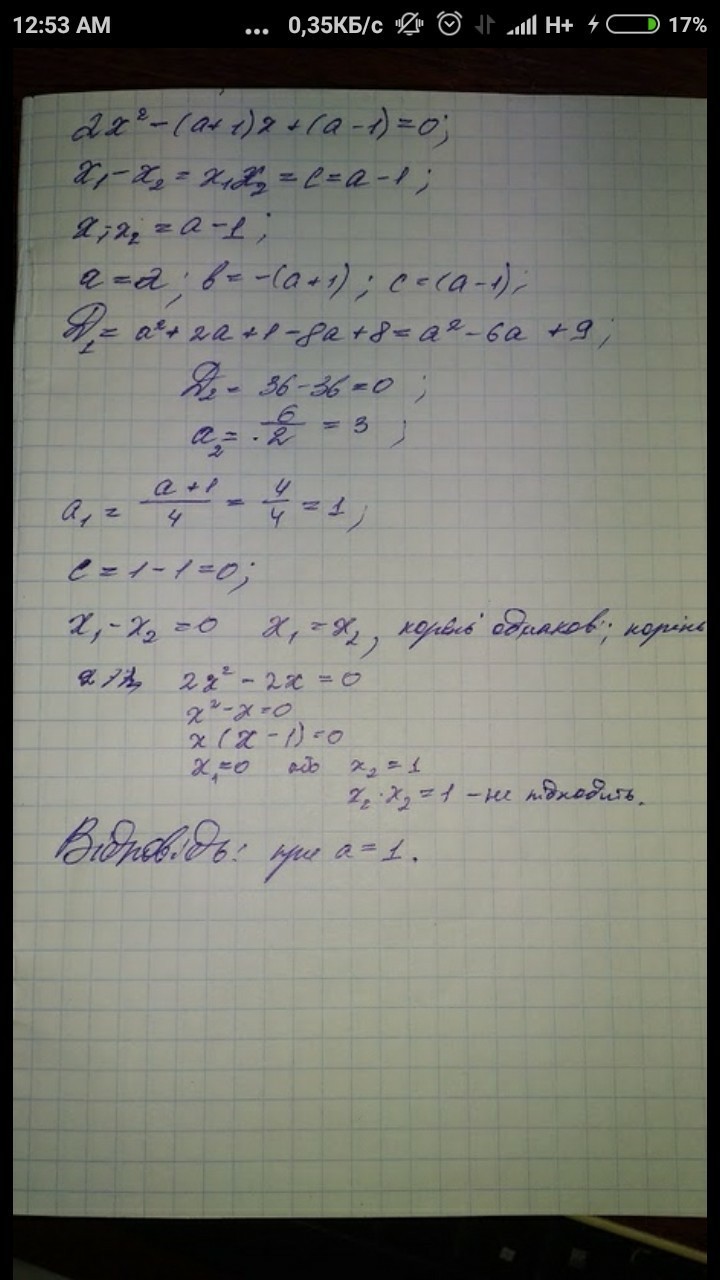 12:53 AM ... 0,35КБ/с H+ 17%
2x² - (a+1)x + (a-1) = 0;
x₁ - x₂ = x₁x₂ = c = a - 1;
x₁-x₂ = a - 1;
a = 2; b = -(a+1); c = (a-1);
D₁ = a² + 2a + 1 - 8a + 8 = a² - 6a + 9;
D₂ = 36 - 36 = 0;
a₂ = 6/2 = 3;
a₁ = (a+1)/4 = 4/4 = 1;
c = 1 - 1 = 0;
x₁ - x₂ = 0 x₁ = x₂, корені однакові; корінь
2x² - 2x = 0
x² - x = 0
x(x - 1) = 0
x₁ = 0 або x₂ = 1
x₂ · x₂ = 1 - не підходить.
Відповідь: при a = 1.